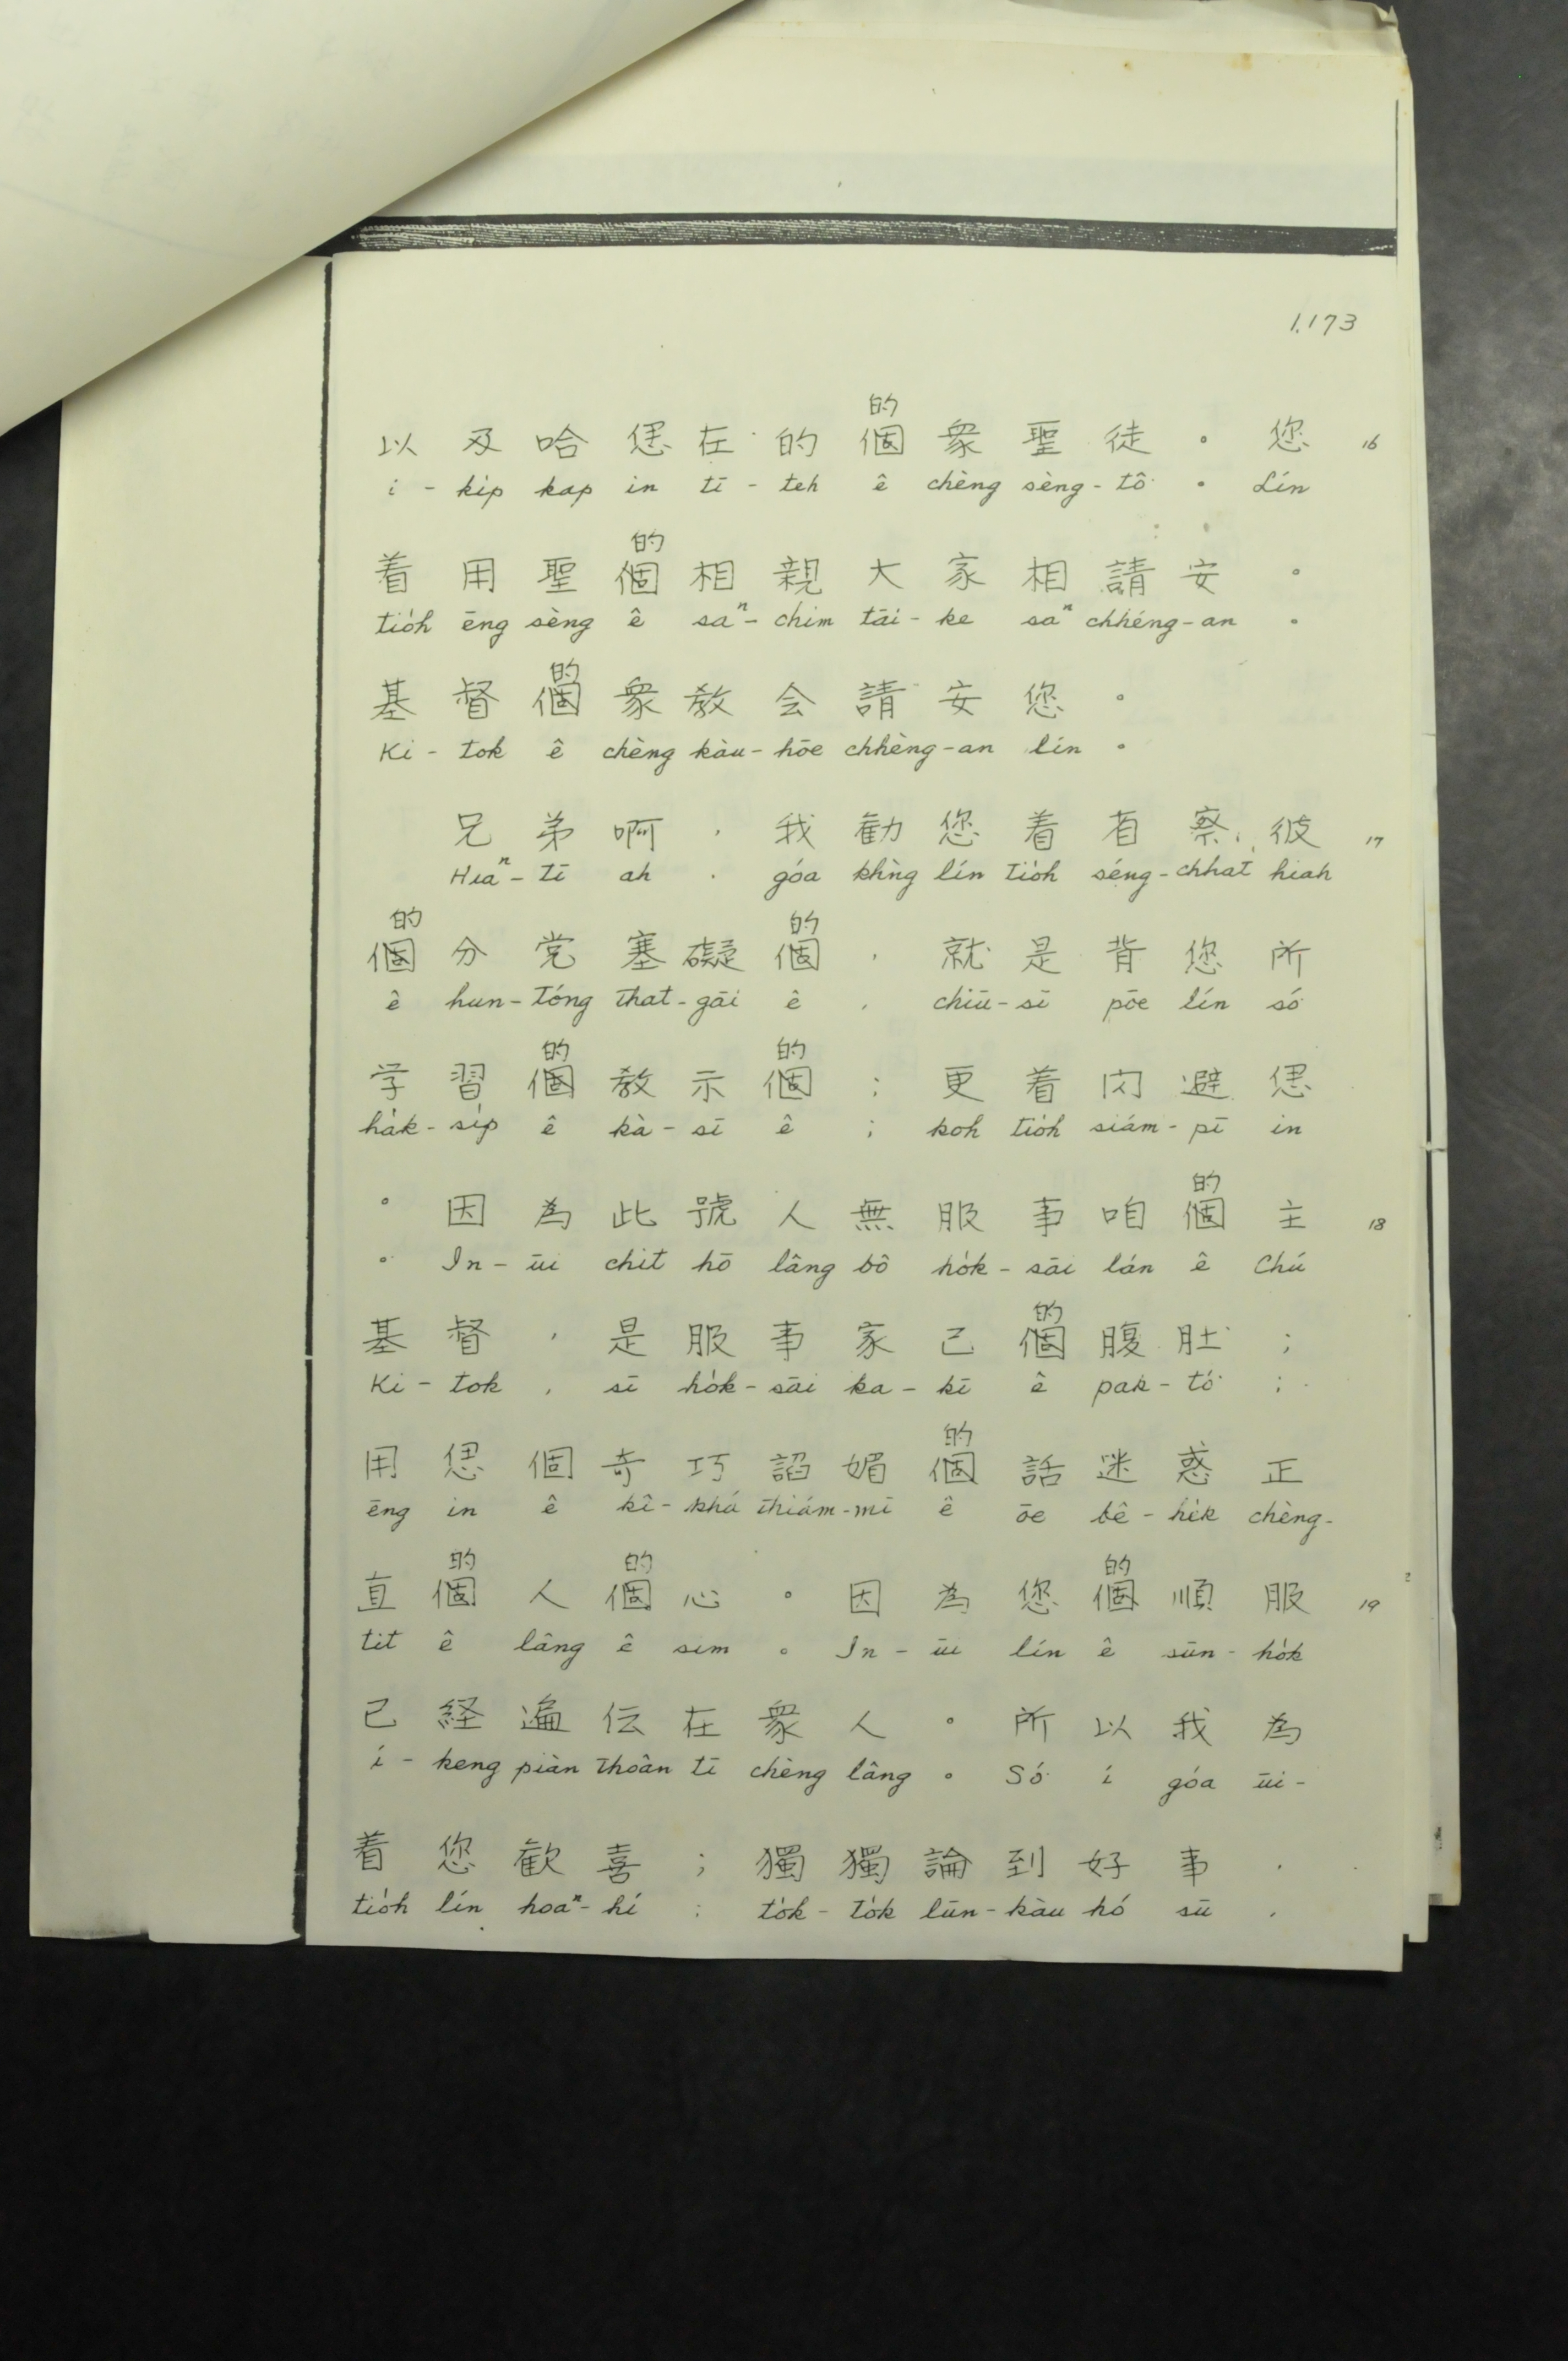 1,173
的
以及哈𪜶在的個衆聖徒。您 16
i - ki̍p kap in tī - teh ê chèng sèng - tô͘ 。 Lín
的
着用聖個相親大家相請安。
tio̍h ēng sèng ê saⁿ - chim tāi - ke saⁿ chhéng - an 。
的
基督個衆教会請安您。
Ki - tok ê chèng kàu - hōe chhèng - an lín 。
兄弟啊，我勸您着省察，彼 17
Hiaⁿ - tī ah , góa khǹg lín tio̍h séng - chhat hiah
的 的
個分党塞礙個，就是背您所
ê hun - tóng that - gāi ê , chiū - sī pōe lín só͘
的 的
学習個教示個；更着闪避𪜶
ha̍k - si̍p ê kà - sī ê ; koh tio̍h siám - pī in
的
。因為此號人無服事咱個主 18
。 In - ūi chit hō lâng bô ho̍k - sāi lán ê Chú
的
基督，是服事家己個腹肚；
Ki - tok , sī ho̍k - sāi ka - kī ê pak - tó͘ ;
的
用𪜶個奇巧諂媚個話迷惑正
ēng in ê kî - khá thiám - mī ê ōe bê - he̍k chèng -
的 的 的
直個人個心。因為您個順服 19
tit ê lâng ê sim 。 In - ūi lín ê sūn - ho̍k
已経遍伝在衆人。所以我為
í - keng piàn thoân tī chèng lâng 。 Só͘ í góa ūi -
着您歡喜；獨獨論到好事，
tio̍h lín hoaⁿ - hí ; to̍k - to̍k lūn - kàu hó sū ,